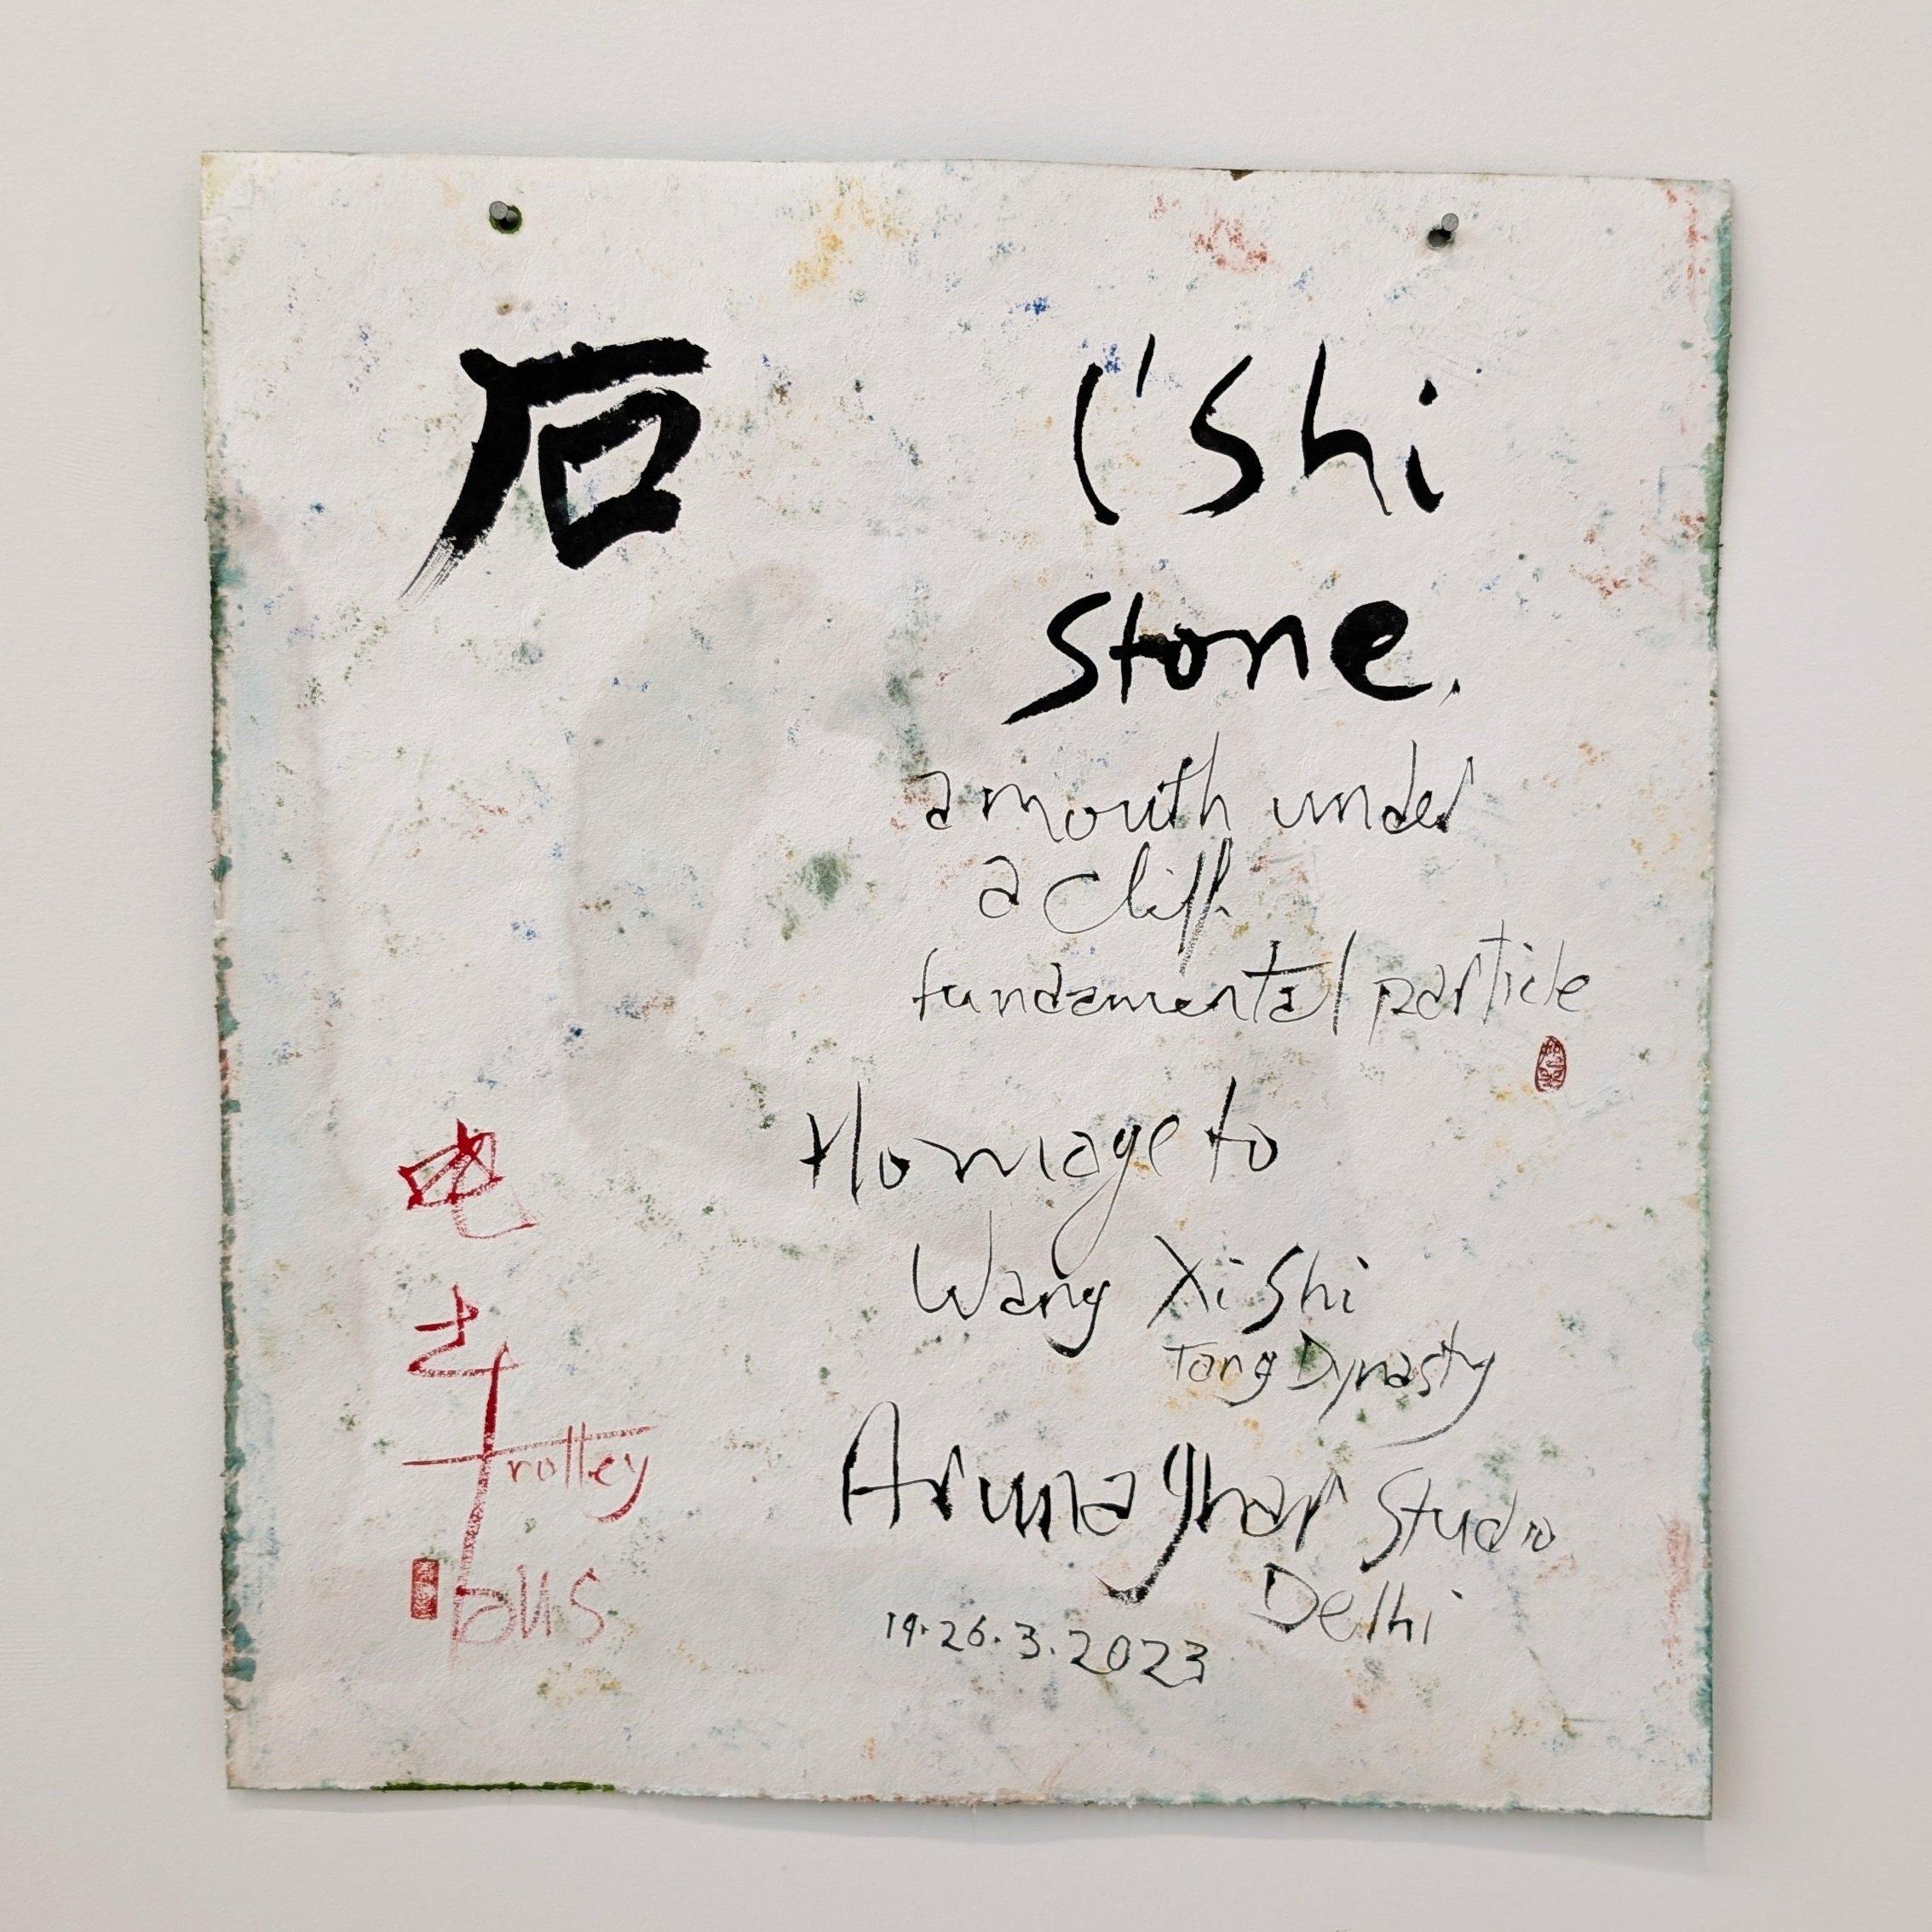 石
l'shi
stone.
a mouth under
a cliff.
fundamental particle
Homage to
Wang Xi Shi
Tang Dynasty
Arunaghar Studio
Delhi
19.26.3.2023
电
车
trolley
bus